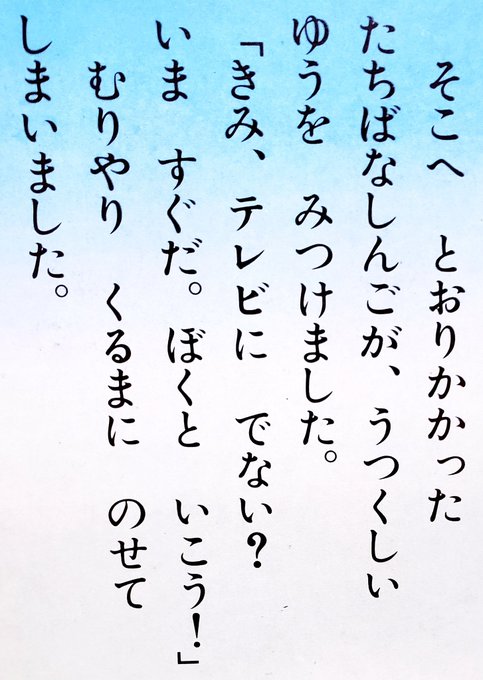 そこへ　とおりかかった
たちばなしんごが、うつくしい
ゆうを　みつけました。
「きみ、テレビに　でない？
いま　すぐだ。ぼくと　いこう！」
むりやり　くるまに　のせて
しまいました。